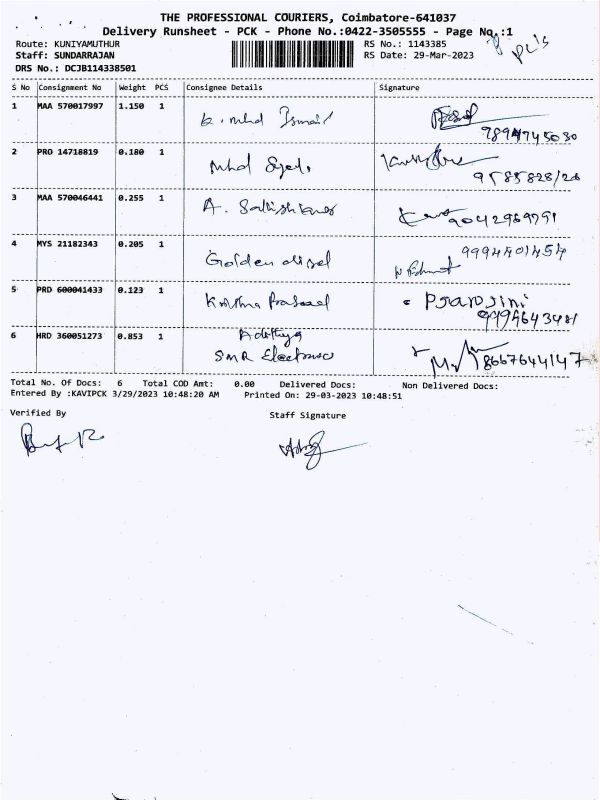 THE PROFESSIONAL COURIERS, Coimbatore-641037
Delivery Runsheet - PCK - Phone No.:0422-3505555 - Page No.:1
Route: KUNIYAMUTHUR
Staff: SUNDARRAJAN
DRS No.: DCJB114338501
RS No.: 1143385
RS Date: 29-Mar-2023
S No Consignment No Weight PCS Consignee Details Signature
1 MAA 570017997 1.150 1 K. Mhd Ismail
2 PRO 14718819 0.180 1 Mhd
3 MAA 570046441 0.255 1 A. 9042969791
4 MYS 21182343 0.205 1 Golden 9994401454
5 PRD 600041433 0.123 1 Krishna Prasad
6 HRD 360051273 0.853 1 Adithya
SMR 8667644147
Total No. Of Docs: 6 Total COD Amt: 0.00 Delivered Docs: Non Delivered Docs:
Entered By :KAVIPCK 3/29/2023 10:48:20 AM Printed On: 29-03-2023 10:48:51
Verified By Staff Signature